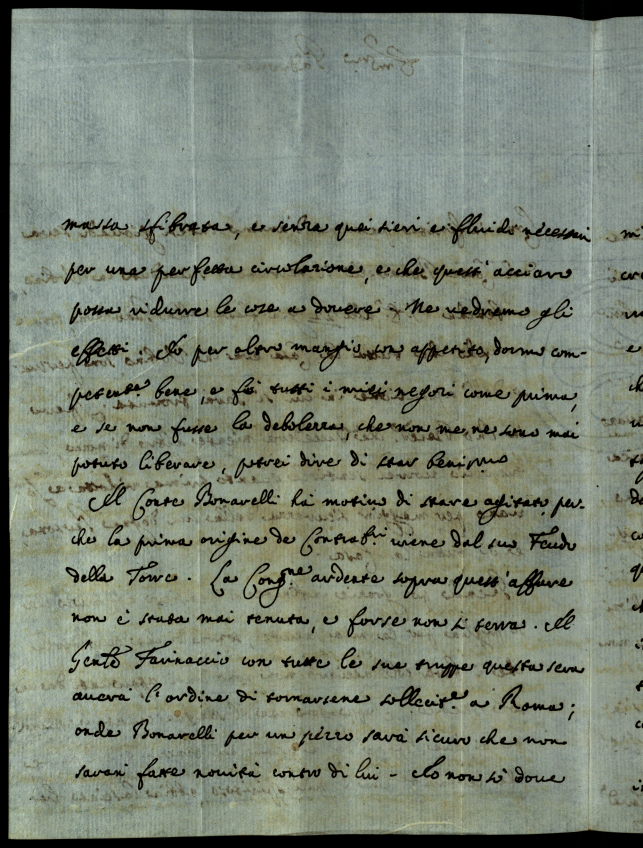 massa sfibrata, e senza quei sieri e fluidi necessari
per una perfetta circolazione, e che quest'acciaro
possa ridurre le cose a dovere - Ne vedremo gli
effetti. Io per altro mangio con appetito, dormo com-
petent.e bene, e fò tutti i miei negozi come prima,
e se non fusse la debolezza, che non me ne sono mai
potuto liberare, potrei dire di star benissimo
Il Conte Bonarelli hà motivo di stare agitato per-
che la prima origine de Contrab.ri viene dal suo Feudo
della Torre. La Cong.ne ardente sopra quest'affare
non è stata mai tenuta, e forse non si terrà. Il
Gente Farinaccio con tutte le sue truppe questa sera
auerà l'ordine di tornarsene sollecit.e a Roma;
onde Bonarelli per un pezzo sarà sicuro che non
sarani fatte novità contro di lui - Io non sò dove
mi
e